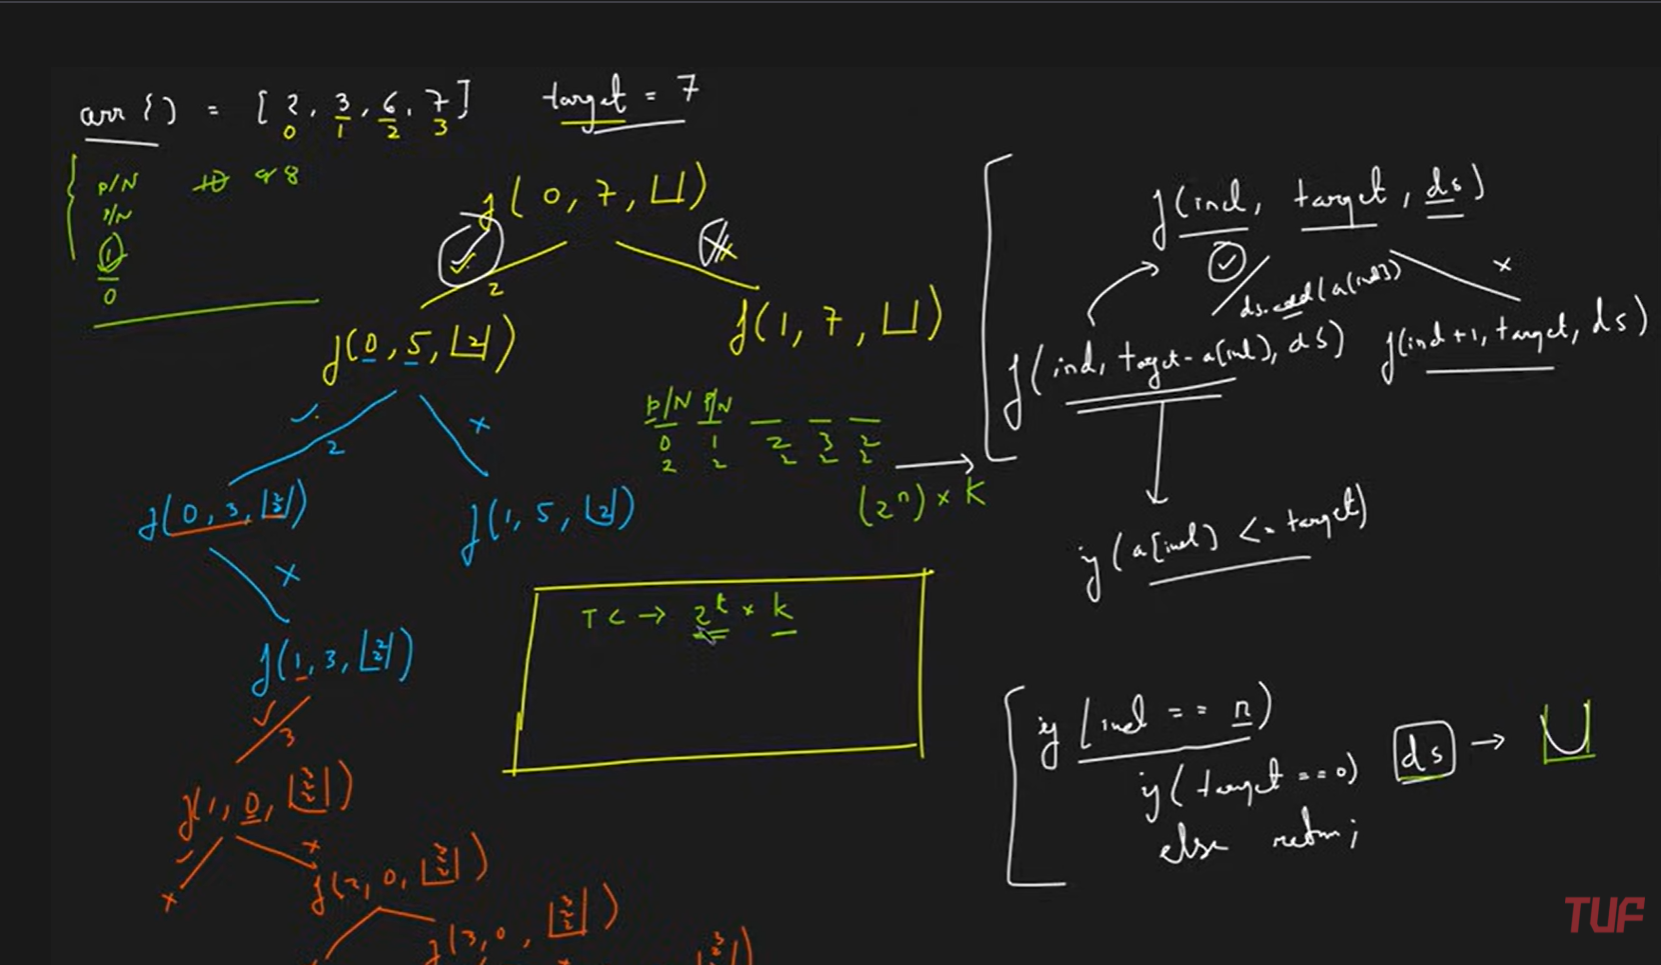 arr[] = [2, 3, 6, 7] target = 7
0 1 2 3
P/N 10 or 8
P/N
1
0
f(0, 7, [])
2
f(0, 5, [2])
f(1, 7, [])
2
x
f(0, 3, [2 2])
f(1, 5, [2])
x
f(1, 3, [2 2])
3
f(1, 0, [3 2 2])
x
x
f(2, 0, [3 2 2])
f(3, 0, [3 2 2])
P/N P/N
0 1 2 3 2
2 2 2 2 2
(2^n) × k
TC → 2^t × k
f(ind, target, ds)
x
ds.add(a[ind])
f(ind, target-a[ind], ds)
f(ind+1, target, ds)
if (a[ind] <= target)
if (ind == n)
if (target == 0) ds →
else return;
TUF